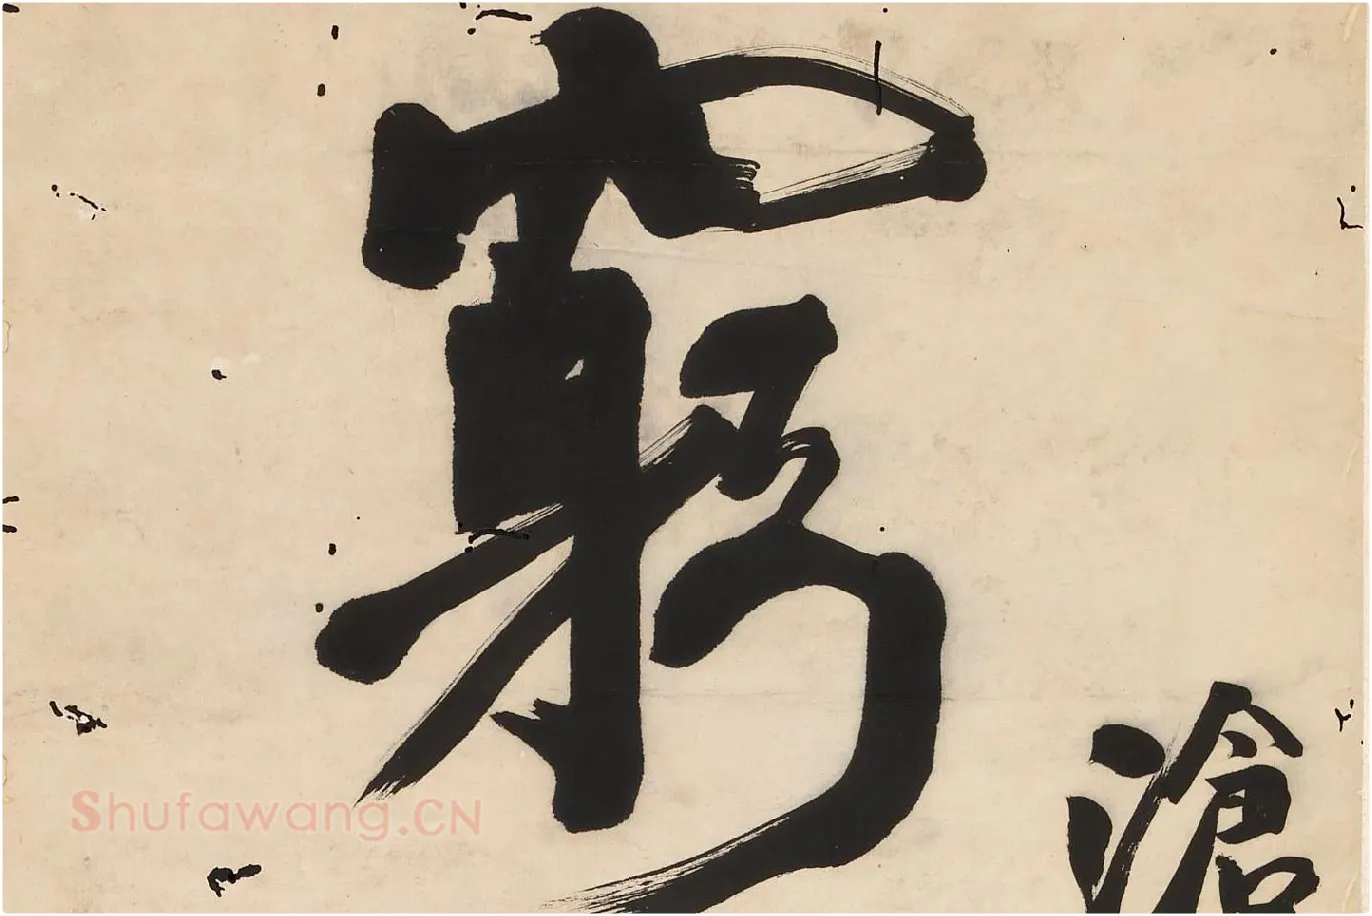 滄
窮
Shufawang.CN